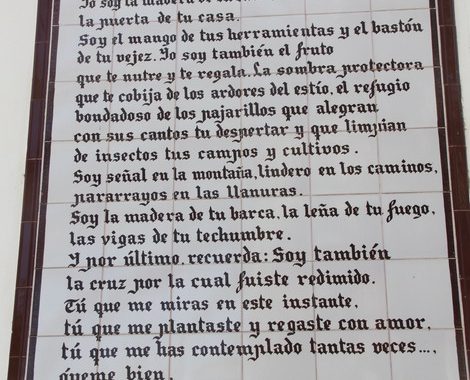 Yo soy la madera de
la puerta de tu casa.
Soy el mango de tus herramientas y el bastón
de tu vejez. Yo soy también el fruto
que te nutre y te regala. La sombra protectora
que te cobija de los ardores del estío, el refugio
bondadoso de los pajarillos que alegran
con sus cantos tu despertar y que limpian
de insectos tus campos y cultivos.
Soy señal en la montaña, lindero en los caminos,
pararrayos en las llanuras.
Soy la madera de tu barca, la leña de tu fuego,
las vigas de tu techumbre.
Y por último, recuerda: Soy también
la cruz por la cual fuiste redimido.
Tú que me miras en este instante,
tú que me plantaste y regaste con amor,
tú que me has contemplado tantas veces...,
óyeme bien,